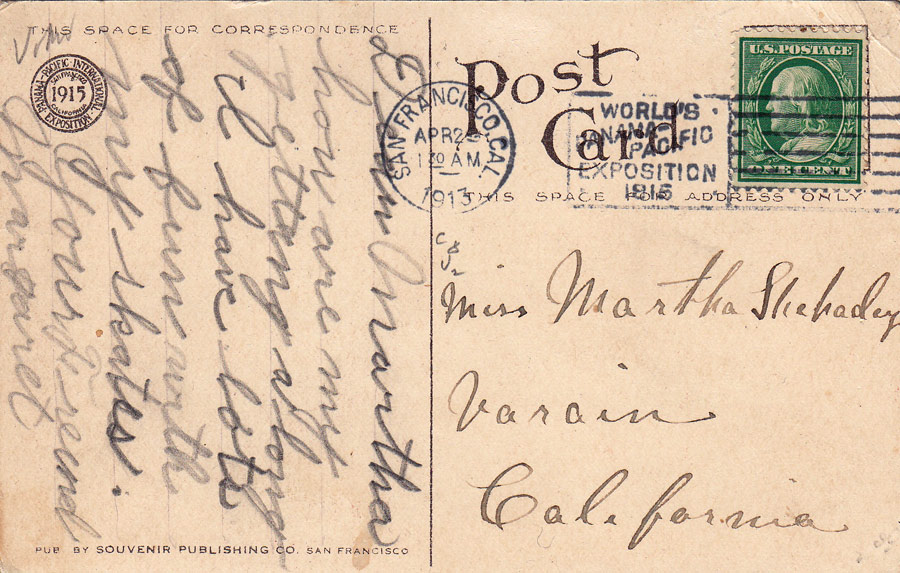 THIS SPACE FOR CORRESPONDENCE
PANAMA-PACIFIC INTERNATIONAL EXPOSITION
SAN FRANCISCO
1915
CALIFORNIA
D Martha
how are my
getting along
I have lots
of fun with
my skates.
Your Friend
Margaret
PUB BY SOUVENIR PUBLISHING CO. SAN FRANCISCO
Post
Card
THIS SPACE FOR ADDRESS ONLY
SAN FRANCISCO, CAL
APR 2
1 30 AM
1913
WORLD'S
PANAMA-
PACIFIC
EXPOSITION
1915
U.S. POSTAGE
ONE CENT
Miss Martha Shehadey
Varain
California